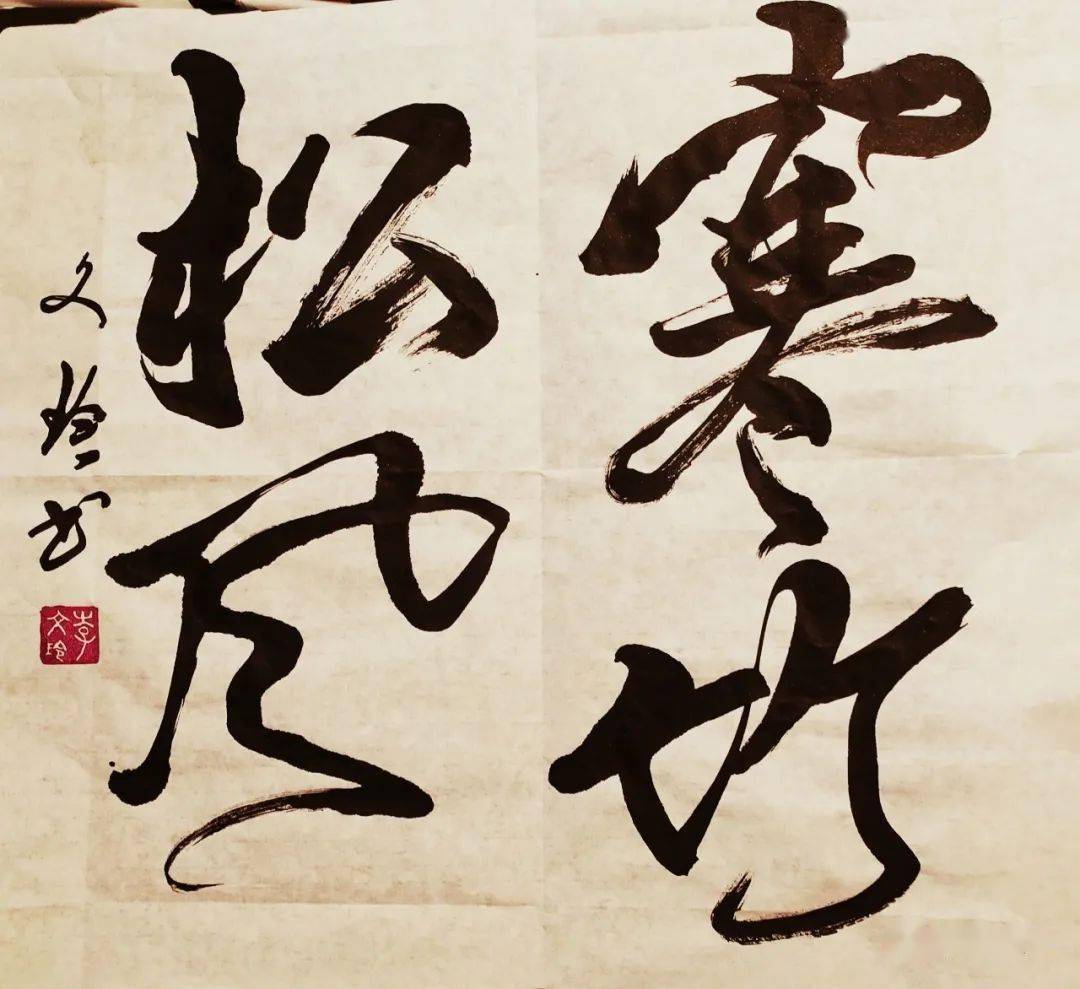 寒竹
松风
文玲书
李文玲